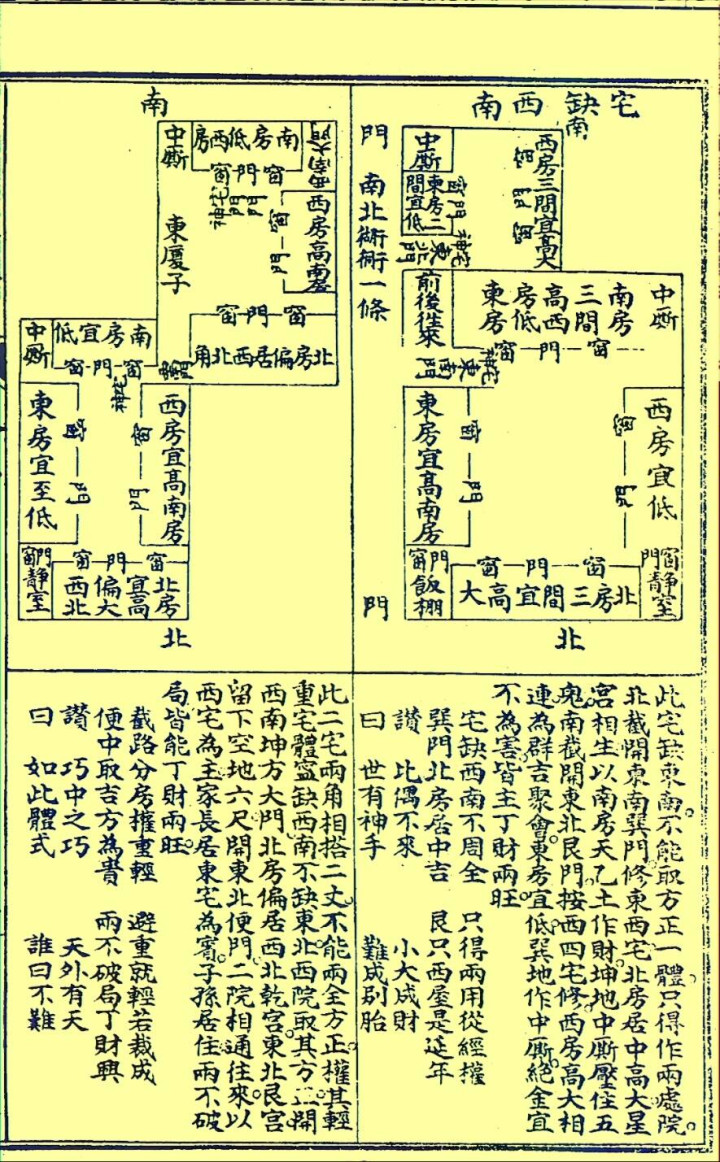 宅缺西南
南
西房三間宜高大
窗
門
窗
中厮
東房二
間宜低
窗門
宅神
東北門
門
南北衚衕一條
門
中厮
南房
三間
西高
低房
東房
窗門窗
前後往來
宅神
東南門
西房宜低
窗
門
東房宜高南房
窗
門
窗門靜室
北房三間宜高大
窗門窗
門窗飯棚
北
此宅缺東南不能取方正一體只得作兩處院
北截開東南巽門修東西宅北房居中高大星
宮相生以南房天乙土作財坤地中厮壓住五
鬼南截開東北艮門按西四宅修西房高大相
連為群吉聚會東房宜低巽地作中厮絕金宜
不為害皆主丁財兩旺
宅缺西南不周全 只得兩用從經權
巽門北房居中吉 艮只西屋是延年
讚 比偶不來 小大成財
曰 世有神手 難成別胎
南
西南大門
南房低西房
窗門窗
中厮
宅神
門
門
西房高南屋
窗
門
東廈子
窗門窗
北房偏居西北角
南房宜低
中厮
窗門窗
宅神
西房宜高南房
窗
門
東房宜至低
窗
門
北房
宜高
偏大
西北
窗門窗
門窗靜室
北
此二宅兩角相搭二丈不能兩全方正權其輕
重宅體寔缺西南不缺東北西院取其方正開
西南坤方大門北房偏居西北乾宮東北艮宮
留下空地六尺開東北便門二院相通往來以
西宅為主家長居東宅為賓子孫居住兩不破
局皆能丁財兩旺
截路分房權重輕 避重就輕若裁成
便中取吉方為貴 兩不破局丁財興
讚 巧中之巧 天外有天
曰 如此體式 誰曰不難